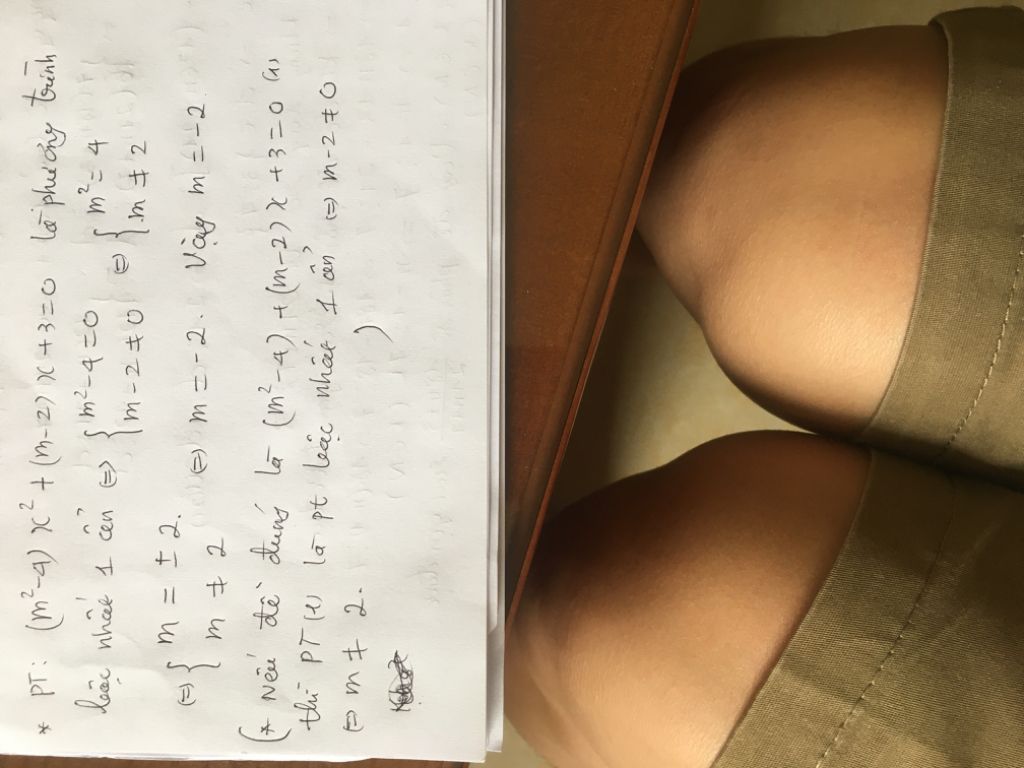 * PT: (m²-4) x² + (m-2) x + 3 = 0 là phương trình
bậc nhất 1 ẩn ⇔ { m²-4=0 m-2≠0 ⇔ { m²=4 m≠2
⇔ { m = ±2. m ≠ 2 ⇔ m = -2. Vậy m = -2
(* Nếu đề đúng là (m²-4) + (m-2) x + 3 = 0 (1)
thì PT (1) là pt bậc nhất 1 ẩn ⇔ m-2 ≠ 0
⇔ m ≠ 2. )